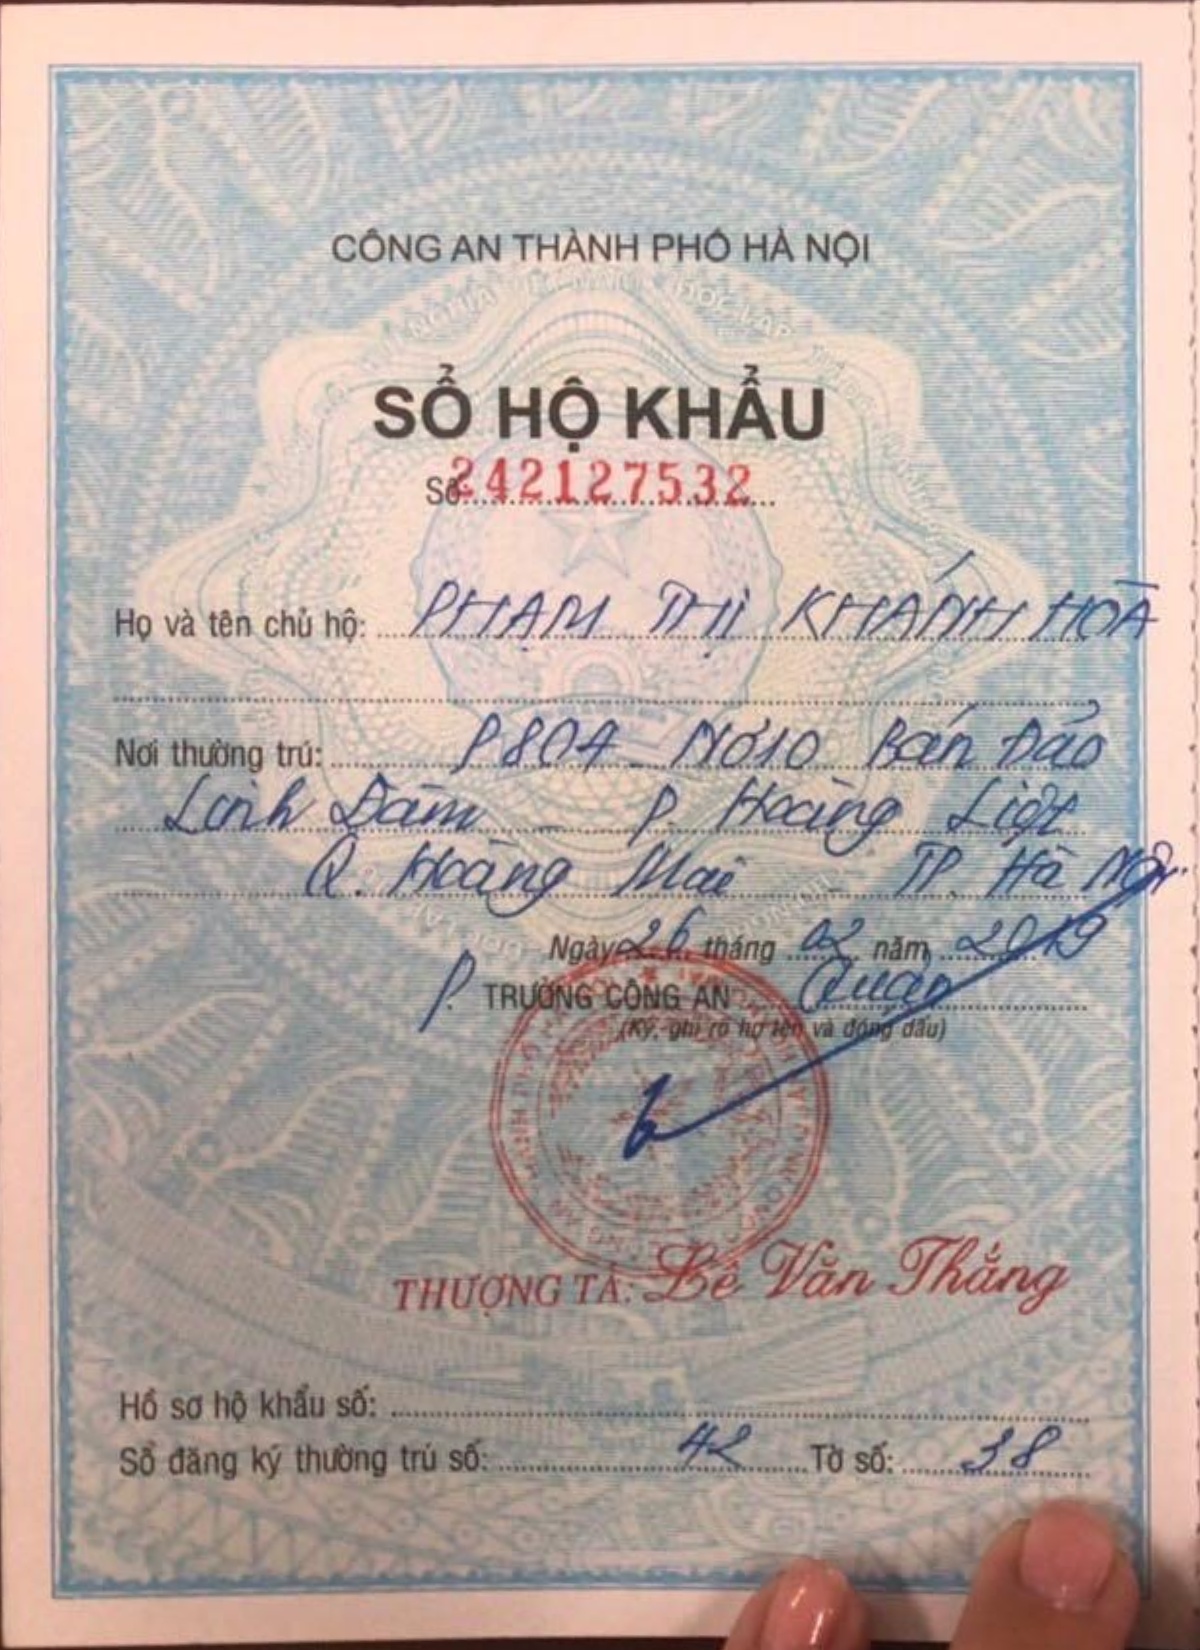 CÔNG AN THÀNH PHỐ HÀ NỘI
SỔ HỘ KHẨU
Số: 242127532
Họ và tên chủ hộ: PHẠM THỊ KHÁNH HOÀ
Nơi thường trú: P804 NƠ10 Bán Đảo
Linh Đàm - P. Hoàng Liệt
Q. Hoàng Mai - TP. Hà Nội.
Ngày 26 tháng 02 năm 2019
P. TRƯỞNG CÔNG AN Quận
(Ký, ghi rõ họ tên và đóng dấu)
THƯỢNG TÁ: Lê Văn Thắng
Hồ sơ hộ khẩu số:
Sổ đăng ký thường trú số: 42 Tờ số: 38